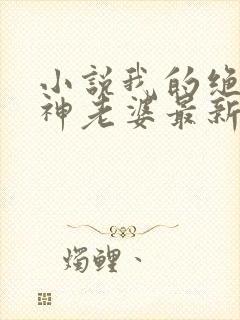 小说我的绝
神老婆最新
烛鲤、